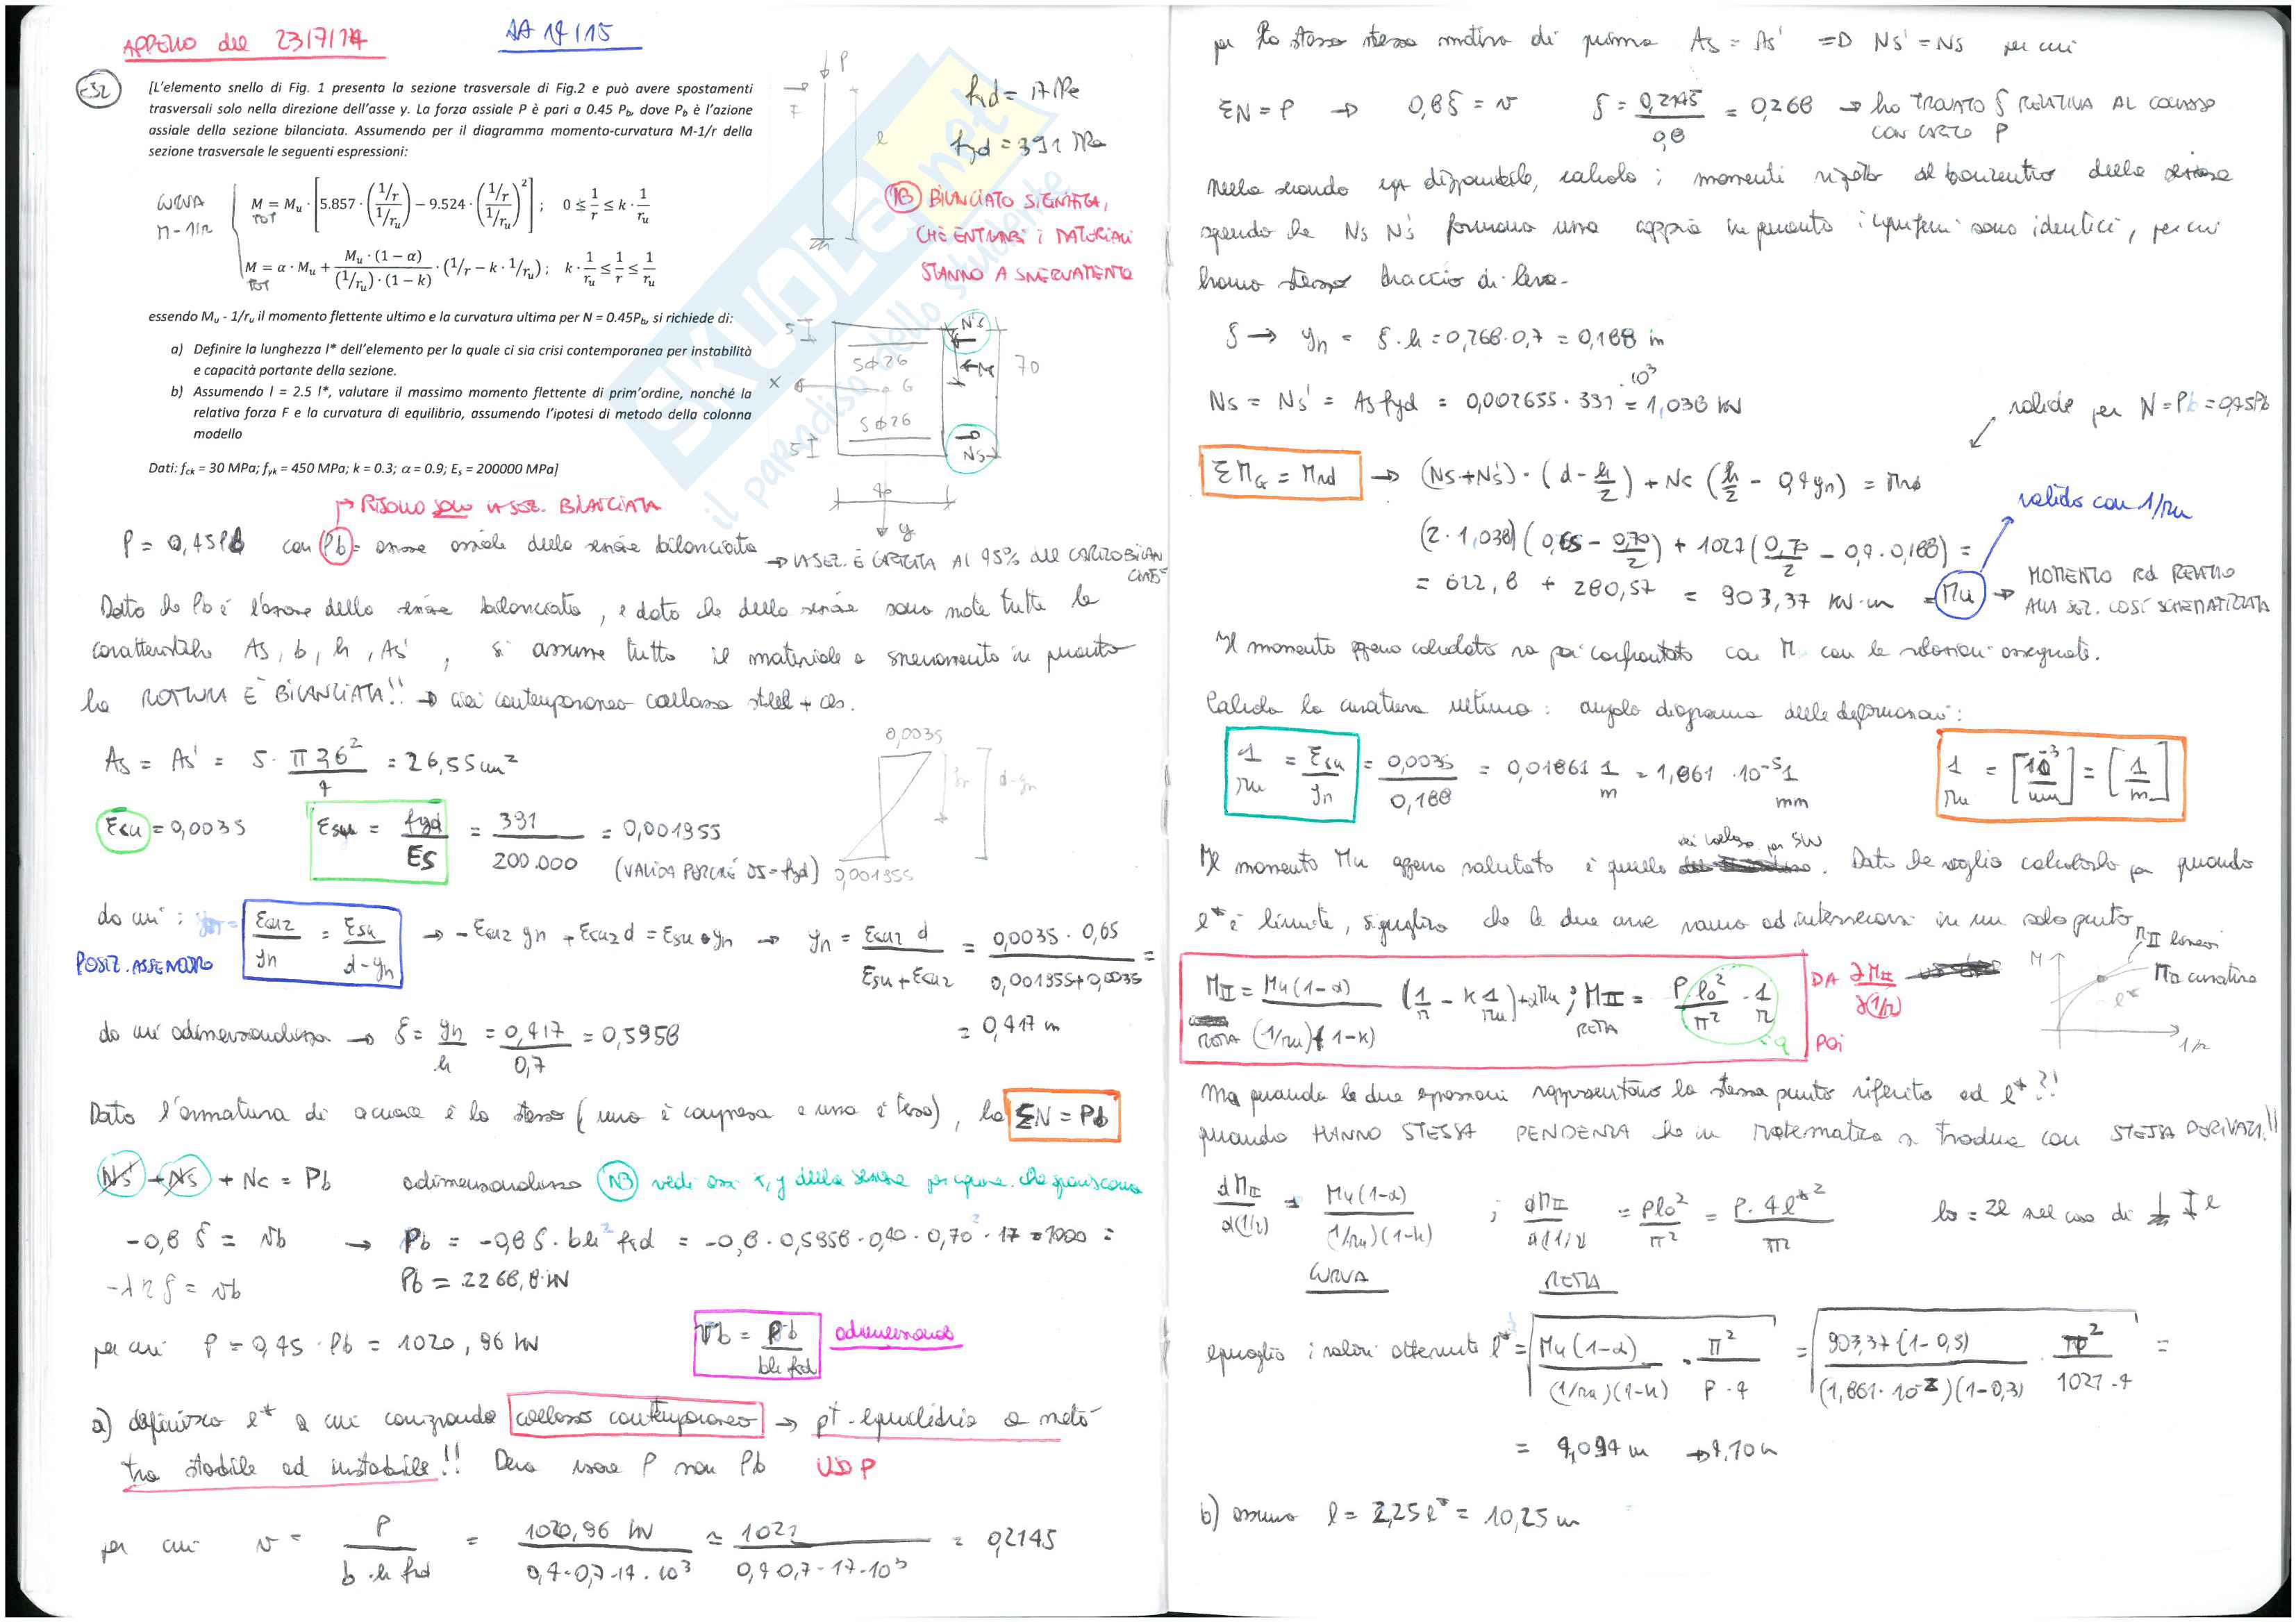 APPELLO del 23/7/14
AA 14/15
ES2
[L'elemento snello di Fig. 1 presenta la sezione trasversale di Fig.2 e può avere spostamenti
trasversali solo nella direzione dell'asse y. La forza assiale P è pari a 0.45 Pb, dove Pb è l'azione
assiale della sezione bilanciata. Assumendo per il diagramma momento-curvatura M-1/r della
sezione trasversale le seguenti espressioni:
CURVA
M-1/r
M = Mu · [5.857 · ((1/r)/(1/ru)) − 9.524 · ((1/r)/(1/ru))²] ; 0 ≤ 1/r ≤ k · 1/ru
TOT
M = α · Mu + (Mu · (1 − α))/((1/ru) · (1 − k)) · (1/r − k · 1/ru); k · 1/ru ≤ 1/r ≤ 1/ru
TOT
essendo Mu - 1/ru il momento flettente ultimo e la curvatura ultima per N = 0.45Pb, si richiede di:
a) Definire la lunghezza l* dell'elemento per la quale ci sia crisi contemporanea per instabilità
e capacità portante della sezione.
b) Assumendo l = 2.5 l*, valutare il massimo momento flettente di prim'ordine, nonché la
relativa forza F e la curvatura di equilibrio, assumendo l'ipotesi di metodo della colonna
modello
Dati: fck = 30 MPa; fyk = 450 MPa; k = 0.3; α = 0.9; Es = 200000 MPa]
P
F
l
fcd = 17 MPa
fyd = 391 MPa
NB BILANCIATO SIGNIFICA,
CHE ENTRAMBI I MATERIALI
STANNO A SNERVAMENTO
SKUOLA.net
il paradiso dello studente
5
N's
5φ26
M
70
x
G
5φ26
5
Ns
40
y
RISOLVO SOLO LA SEZ. BILANCIATA
P = 0,45Pb con Pb = azione assiale della sezione bilanciata → LA SEZ. È CARICATA AL 45% DEL CARICO BILAN
CIATO
Dato che Pb è l'azione della sezione bilanciata, e dato che della sezione sono note tutte le
caratteristiche As, b, h, As', si assume tutto il materiale a snervamento in quanto
la ROTTURA È BILANCIATA!! → cioè contemporaneo collasso steel + cls.
As = As' = 5 · π 26²/4 = 26,55 cm²
0,0035
yn
d-yn
0,001955
Ecu = 0,0035
Esu = fyd/Es = 391/200.000 = 0,001955
(VALIDA PERCHÉ σs = fyd)
da cui:
POSIZ. ASSE NEUTRO
Ecu2/yn = Esu/(d-yn) → -Ecu2 yn + Ecu2 d = Esu · yn → yn = Ecu2 d/(Esu + Ecu2) = 0,0035 · 0,65/(0,001955 + 0,0035) =
= 0,417 m
da cui adimensionalizzo → ξ = yn/h = 0,417/0,7 = 0,5958
Dato l'armatura di acciaio è la stessa (uno è compresso e uno è teso), ho ΣN = Pb
Ns' + Ns + Nc = Pb adimensionalizzo NB vedi assi x, y della sezione per capire che spariscono
-0,8 ξ = νb → Pb = -0,8 ξ · bh² fcd = -0,8 · 0,5958 · 0,40 · 0,70² · 17 · 1000 =
-λ η ξ = νb Pb = 2268,8 kN
per cui P = 0,45 · Pb = 1020,96 kN
νb = Pb/(bh fcd) adimensionale
a) definisco l* a cui corrisponde collasso contemporaneo → pt equilibrio a metà
tra stabile ed instabile!! Devo usare P non Pb USO P
per cui ν = P/(b · h fcd) = 1020,96 kN/(0,4 · 0,7 · 17 · 10³) ≈ 1021/(0,4 · 0,7 · 17 · 10³) = 0,2145
per lo stesso stesso motivo di prima As = As' ⇒ Ns' = Ns per cui
ΣN = P → 0,8ξ = ν ξ = 0,2145/0,8 = 0,268 → ho TROVATO ξ RELATIVA AL COLLASSO
CON CARICO P
Nella seconda eq. disponibile, calcolo i momenti rispetto al baricentro della sezione
sapendo che Ns Ns' formano una coppia in quanto i copriferri sono identici, per cui
hanno stesso braccio di leva.
ξ → yn = ξ · h = 0,268 · 0,7 = 0,188 m
Ns = Ns' = As fyd = 0,002655 · 391 · 10³ = 1,038 kN
valido per N = Pb = 0,45Pb
ΣMG = Mrd → (Ns + Ns') · (d - h/2) + Nc (h/2 - 0,4yn) = Mrd
(2 · 1,038)(0,65 - 0,70/2) + 1021(0,70/2 - 0,4 · 0,188) =
= 622,8 + 280,57 = 903,37 kN·m = Mu → MOMENTO Rd RELATIVO
ALLA SEZ. COSÌ SCHEMATIZZATA
valido con 1/ru
Il momento appena calcolato va poi confrontato con M con le relazioni assegnate.
Calcolo la curvatura ultima: angolo diagramma delle deformazioni:
1/ru = Ecu/yn = 0,0035/0,188 = 0,01861 1/m = 1,861 · 10⁻⁵ 1/mm
1/ru = [10⁻³/mm] = [1/m]
Il momento Mu appena valutato è quello del collasso per SLU. Dato che voglio calcolarlo per quando
l* è limite, significa che le due curve vanno ad intersecarsi in un solo punto
MII = Mu(1-α)/((1/ru)(1-k)) (1/r - k 1/ru) + αMu ; MII = P lo²/π² · 1/r
RETTA
DA ∂MII/∂(1/r)
POI
M
MII lineare
M curvatura
l*
1/r
Ma quando le due espressioni rappresentano lo stesso punto riferito ad l*?!
quando HANNO STESSA PENDENZA che in matematica si traduce con STESSA DERIVATA!!
dMII/d(1/r) = Mu(1-α)/((1/ru)(1-k)) ; dMII/d(1/r) = Plo²/π² = P · 4l*²/π² lo = 2l nel caso di l
CURVA RETTA
eguaglio i valori ottenuti l* = √(Mu(1-α)/((1/ru)(1-k)) · π²/(P · 4)) = √(903,37(1-0,9)/((1,861 · 10⁻²)(1-0,3)) · π²/(1021 · 4)) =
= 4,094 m → 4,10 m
b) assumo l = 2,25 l* = 10,25 m